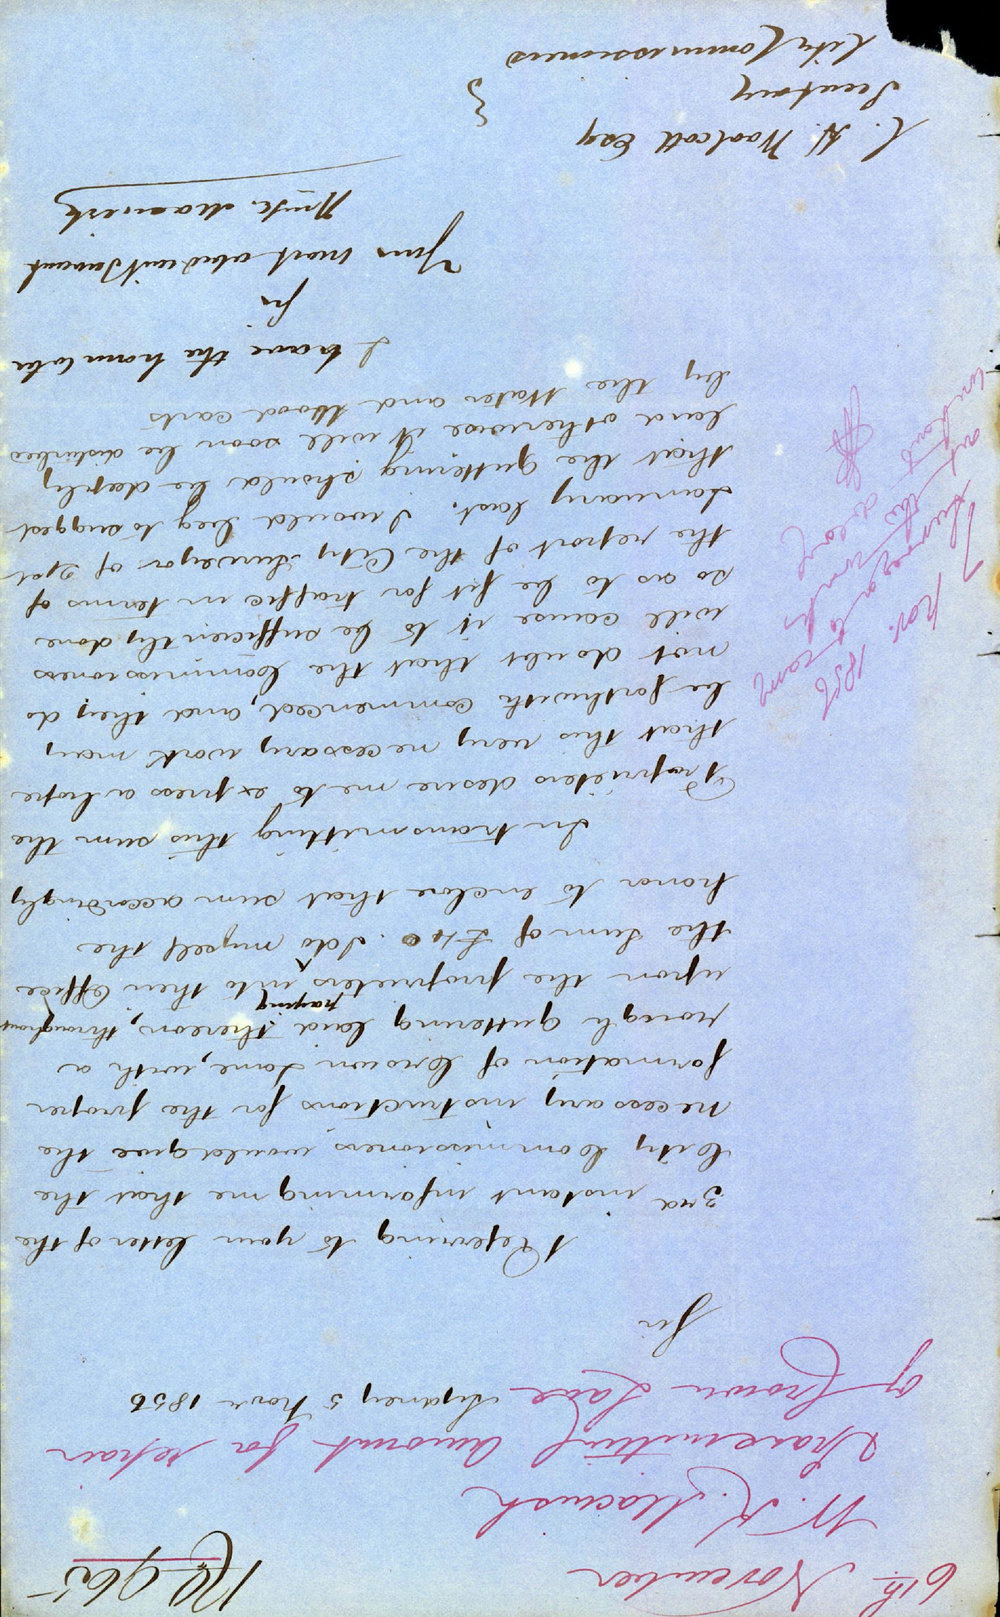 6th November
No 965
W. K. Macnish
Transmitting amount for repair
of Crown Lane
Sydney 5 Novr 1856
Sir
Referring to your letter of the
3rd instant informing me that the
City Commissioners would give the
necessary instructions for the proper
formation of Crown Lane, with a
rough guttering laid thereon, throughout
upon the proprietors paying into their Office
the sum of £40. I do myself the
honor to enclose that sum accordingly
In transmitting this sum the
Proprietors desire me to express a hope
that this very necessary work may
be forthwith commenced, and they do
not doubt that the Commissioners
will cause it to be sufficiently done
so as to be fit for traffic in terms of
the report of the City Surveyor of
January last. I would beg to suggest
that the guttering should be deeply
laid otherwise it will soon be disturbed
by the Water and Wood carts
I have the honor to be
Sir
Your most obedient Servant
Macnish
Woolcott Esq
Secretary
City Commissioners
7 Nov. 1856
Surveyor to carry
out this work
at